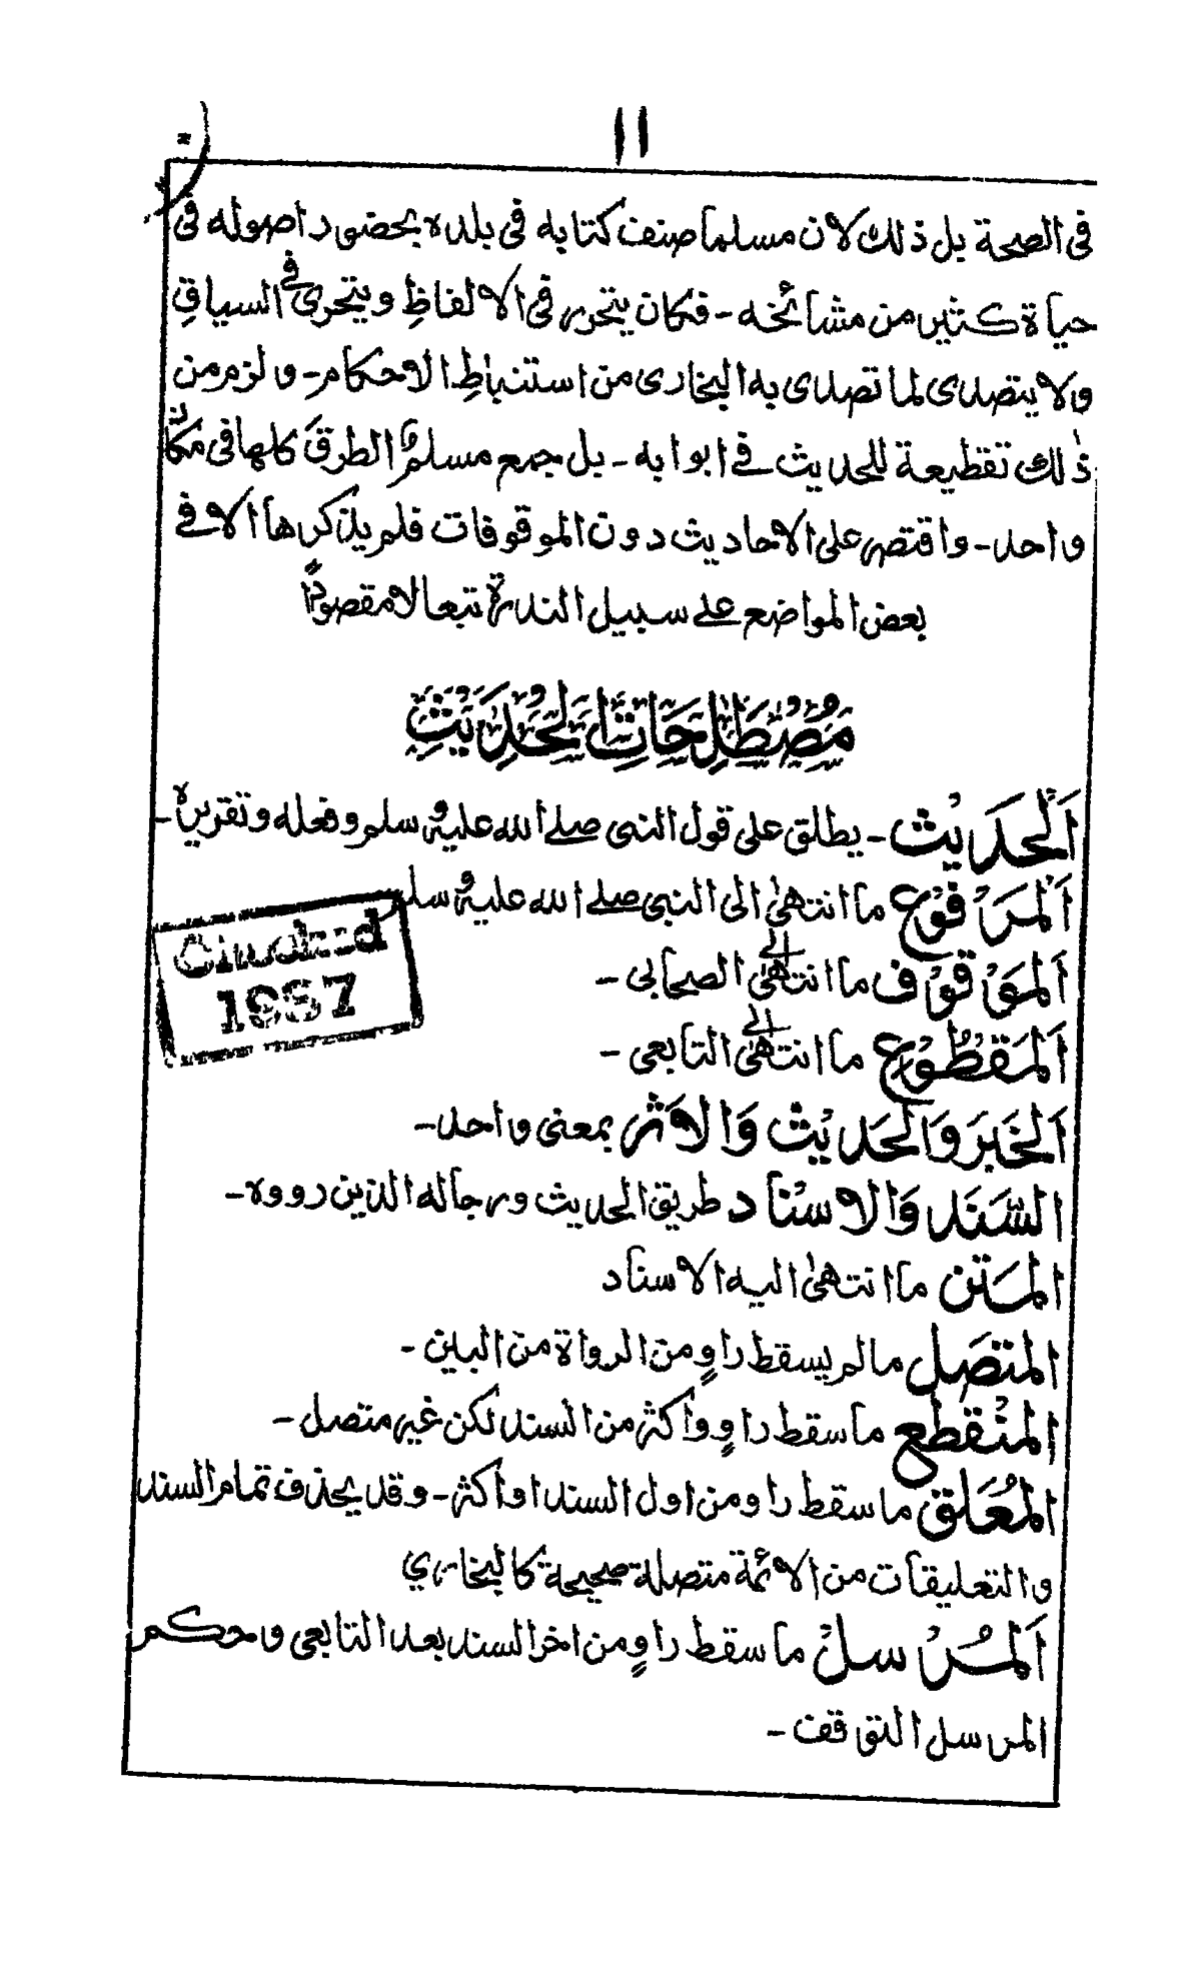 ١١
فى الصحة بل ذلك لان مسلما صنف كتابه فى بلده بحضور اصوله فى
حياة كثير من مشائخه - فكان يتحرر فى الالفاظِ ويتحرى فى السياقِ
ولا يتصدى لما تصدى به البخارى من استنباطِ الاحكام - ولزم من
ذٰلك تقطيعة للحديث فے ابوابه - بل جمع مسلمٌ الطرقَ كلها فى مكانٍ
واحد - واقتصر على الاحاديث دون الموقوفات فلم يذكرها الا فے
بعض المواضع علے سبيل الندرة تبعا لا مقصودًا
مُصْطَلِحَاتُ الْحَدِيْثِ
اَلْحَدِيْث - يطلق على قول النبى صلے الله عليه وسلم وفعله وتقريره -
اَلْمَرْفُوْع ما انتهىٰ الى النبى صلے الله عليه وسلم
Circulated
1987
اَلْمَوْقُوْف ما انتهىٰ الے الصحابى -
اَلْمَقْطُوْع ما انتهىٰ الے التابعى -
اَلْخَبَر وَالْحَدِيْث وَالاَثَر بمعنى واحد -
السَّنَد وَالاسْنَاد طريق الحديث ورجاله الذين رووه -
المَتَن ما انتهىٰ اليه الاسناد
المتصَل مالم يسقط راوٍ من الرواة من البين -
المنْقَطع ما سقط راوٍ واكثر من السند لكن غير متصل -
المُعَلق ما سقط راو من اول السند او اكثر - وقد يحذف تمام السند
والتعليقات من الائمة متصلة صحيحة كالبخاري
اَلْمُرْسلْ ما سقط راوٍ من اخر السند بعد التابعى وحكم
المرسل التوقف -